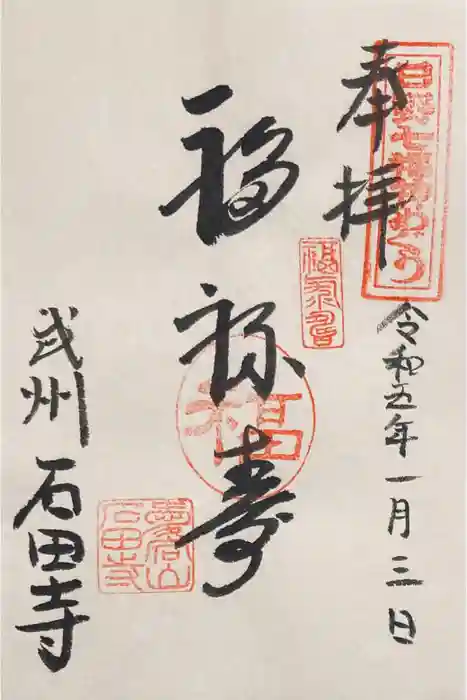 奉拝
日野七福神めぐり
令和五年一月三日
福禄寿
福
武州 石田寺
石田寺